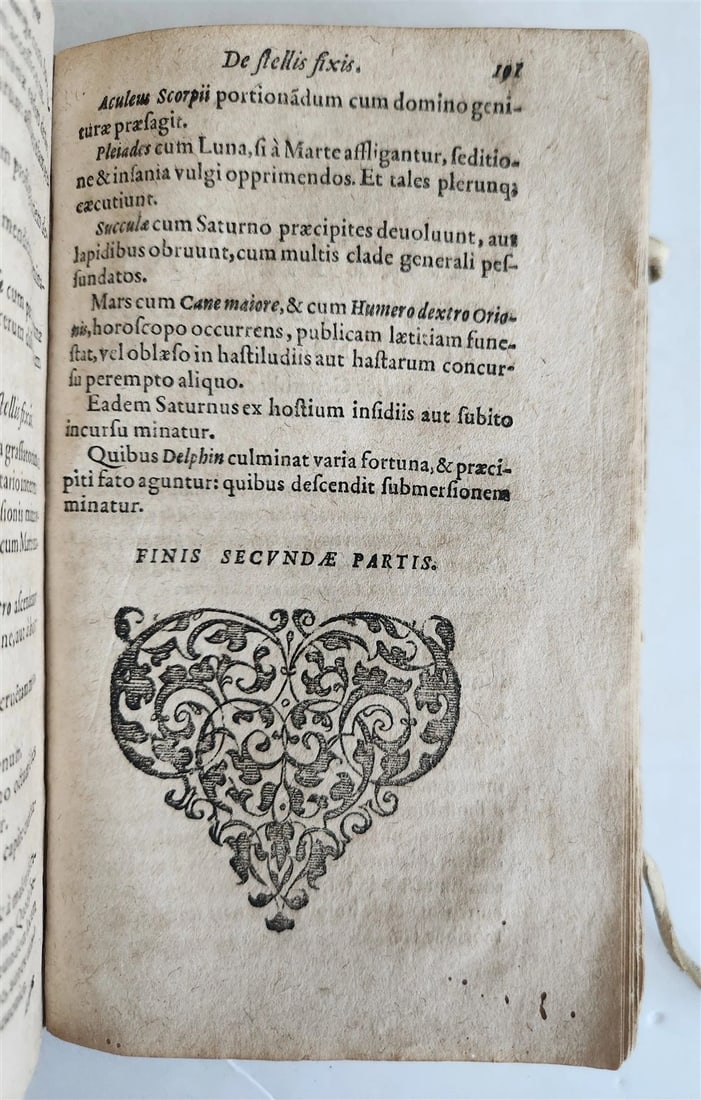 De ſtellis fixis. 191
Aculeus Scorpii portionādum cum domino geni-
turæ præſagit.
Pleiades cum Luna, ſi à Marte affligantur, ſeditio-
ne & inſania vulgi opprimendos. Et tales plerunq;
excutiunt.
Succulæ cum Saturno præcipites deuoluunt, aut
lapidibus obruunt, cum multis clade generali peſ-
ſundatos.
Mars cum Cane maiore, & cum Humero dextro Orio-
nis, horoſcopo occurrens, publicam lætitiam fune-
ſtat, vel oblæſo in haſtiludiis aut haſtarum concur-
ſu perempto aliquo.
Eadem Saturnus ex hoſtium inſidiis aut ſubito
incurſu minatur.
Quibus Delphin culminat varia fortuna, & præci-
piti fato aguntur: quibus deſcendit ſubmerſionem
minatur.
FINIS SECVNDÆ PARTIS.